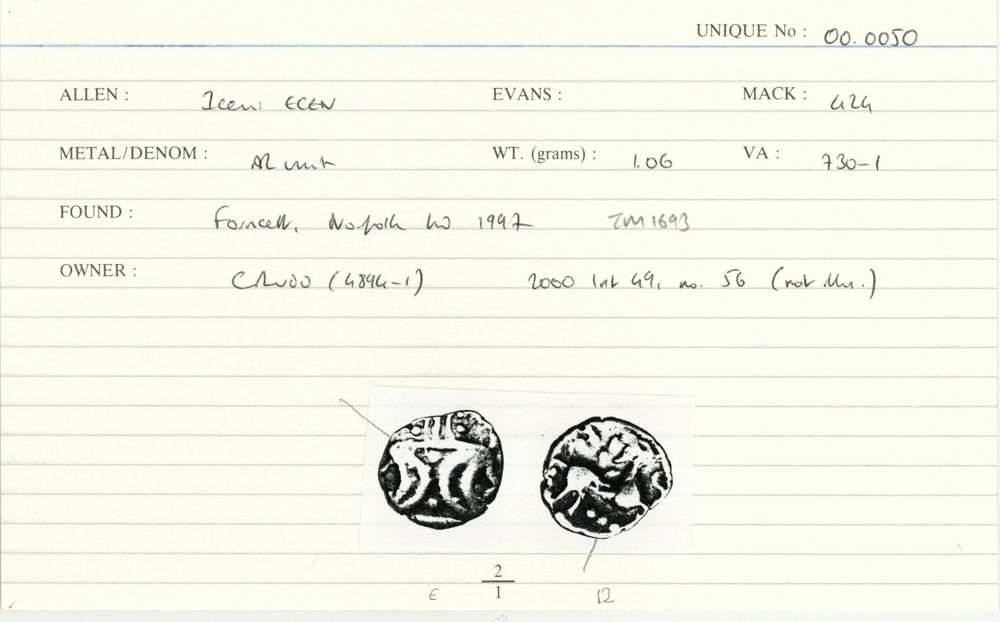 UNIQUE No : 00.0050
ALLEN : Iceni ECEN EVANS : MACK : 424
METAL/DENOM : AR unit WT. (grams) : 1.06 VA : 730-1
FOUND : Forncett, Norfolk 1997 TM1693
OWNER : CR (4894-1) 2000 lot 49, no. 56 (not illus.)
2
1
E 12